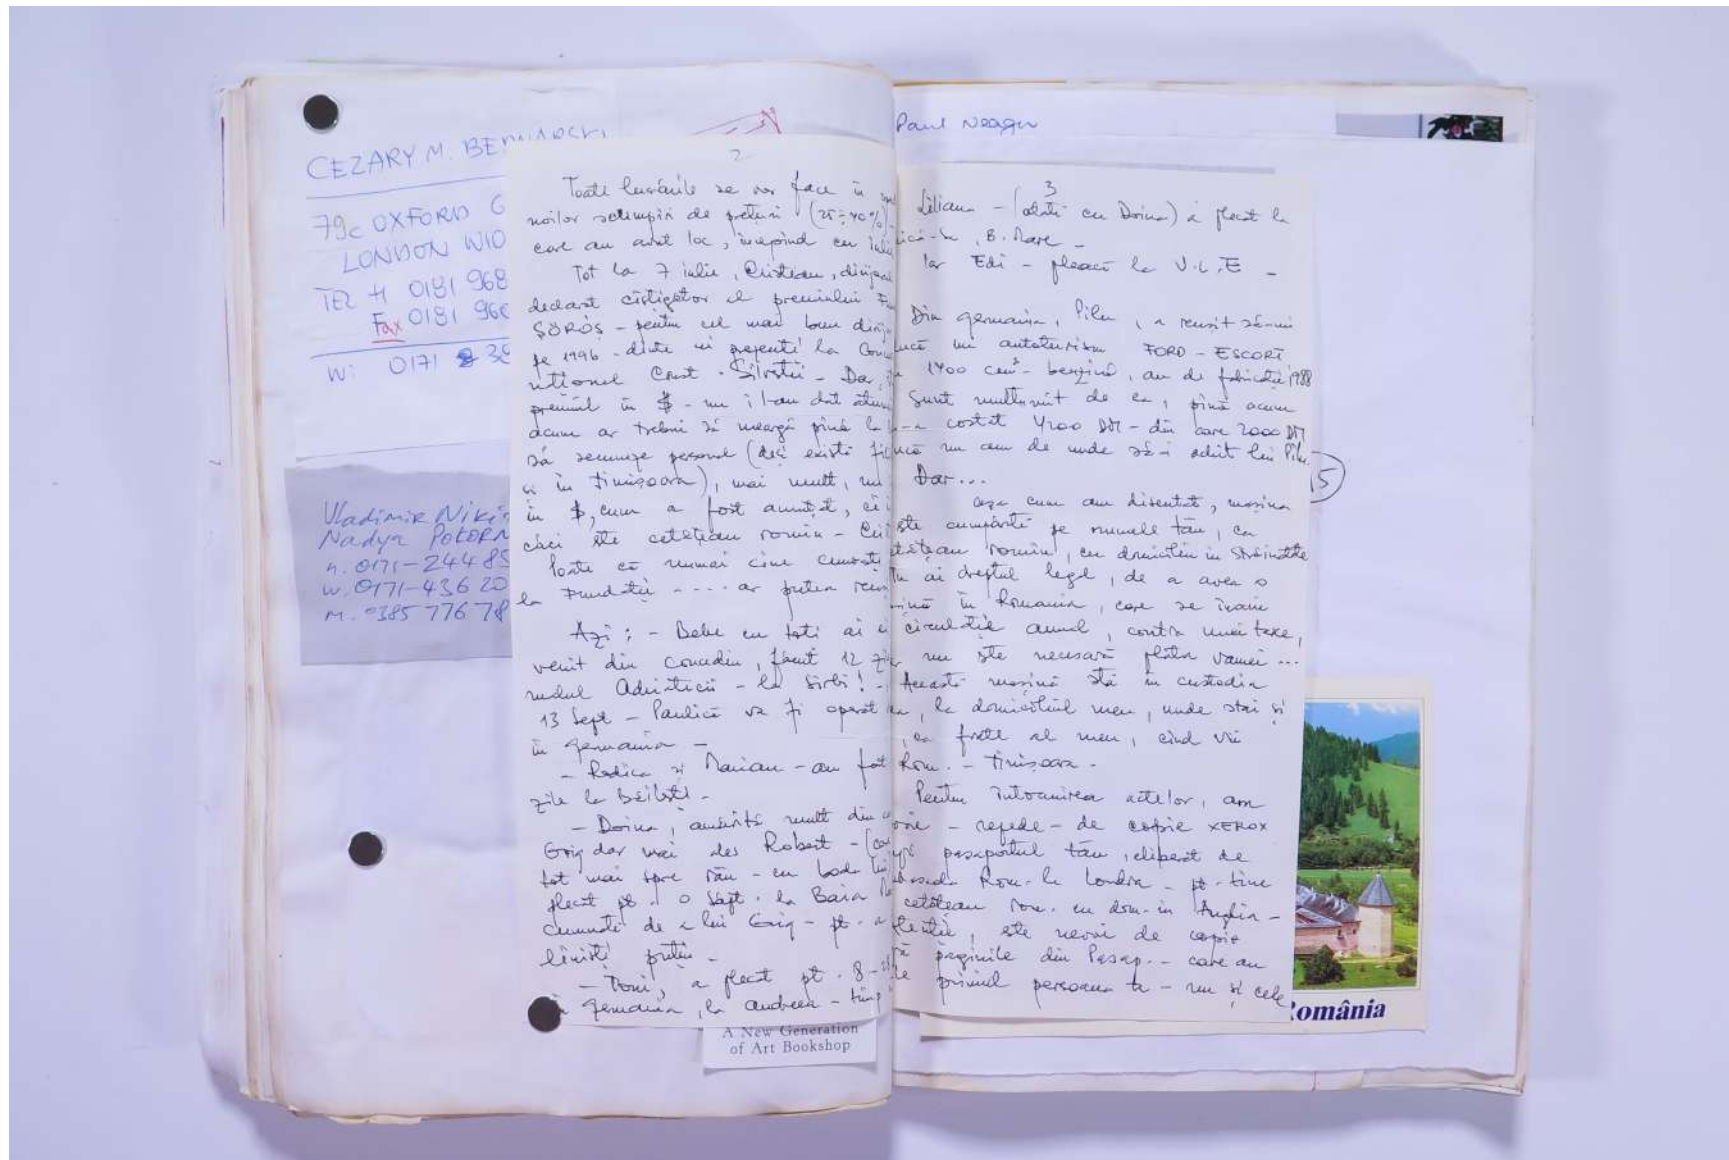 CEZARY M. BEDNARSKI
79c OXFORD G
LONDON W10
TEL H 0181 968
Fax 0181 960
W: 0171 38
Vladimir Niki
Nadya POKORN
h. 0171-244 85
w. 0171-436 20
M. 0385 776 78
2
Toate lucrările se vor face în
noilor schimpări de prețuri (25÷40%)
care au avut loc, începînd cu iulie
Tot la 7 iulie, Cristean, dirijor
declarat cîștigător al premiului
SÖRÖS - pentru cel mai bun dirij
pe 1996 - dintre cei prezenți la Con
național Const. Silvestri - Dar,
premiul în $ - nu i l-au dat atun
acum ar trebui să meargă pînă la
să semneze personal (deși există fil
și în Timișoara), mai mult, nu
în $, cum a fost anunțat, ci
căci este cetățean romîn -
Poate că numai cine cunoaște
la Fundație ---- ar putea
Azi: - Bebe cu toți ai
venit din concediu, făcut 12 zi
malul Adriaticii - la Sîrbi! -
13 Sept - Paulică va fi operat
în Germania -
- Rodica și Marian - au fost
zile la Băilești -
- Doina, amărîtă mult din
Grig dar mai ales Robert -
tot mai spre rău - cu boala lui
plecat pt. o săpt. la Baia
cumnate de a lui Grig - pt. a
liniști puțin -
- Toni, a plecat pt. 8 -
Germania, la Andreea - timp
A New Generation
of Art Bookshop
Paul Neagu
3
Liliana - (odată cu Doina) a plecat la
B. Mare -
Iar Edi - pleacă la
Din Germania, Pilu, a reușit să-mi
un autoturism FORD - ESCORT,
1400 cm³ - benzină, an de fabricație 1988
Sunt mulțumit de ea, pînă acum
costat 4200 DM - din care 2000 DM
nu am de unde să-i achit lui Pilu.
Dar...
așa cum am discutat, mașina
este cumpărată pe numele tău, ca
cetățean romîn, cu domiciliu în străinătate
Tu ai dreptul legal, de a avea o
în Romania, care se înscrie
circulație anual, contra unei taxe,
nu este necesară plata vamei ...
Această mașină stă în custodia
la domiciliul meu, unde stai și
ca frate al meu, cînd vii
Rom. - Timișoara -
Pentru întocmirea actelor, am
- repede - de copie XEROX
pașaportul tău, eliberat de
Rom. la Londra - pt. tine
cetățean rom. cu dom. în Anglia -
este nevoie de copie
paginile din Pașap. - care au
privind persoana ta - nu și cele
omânia